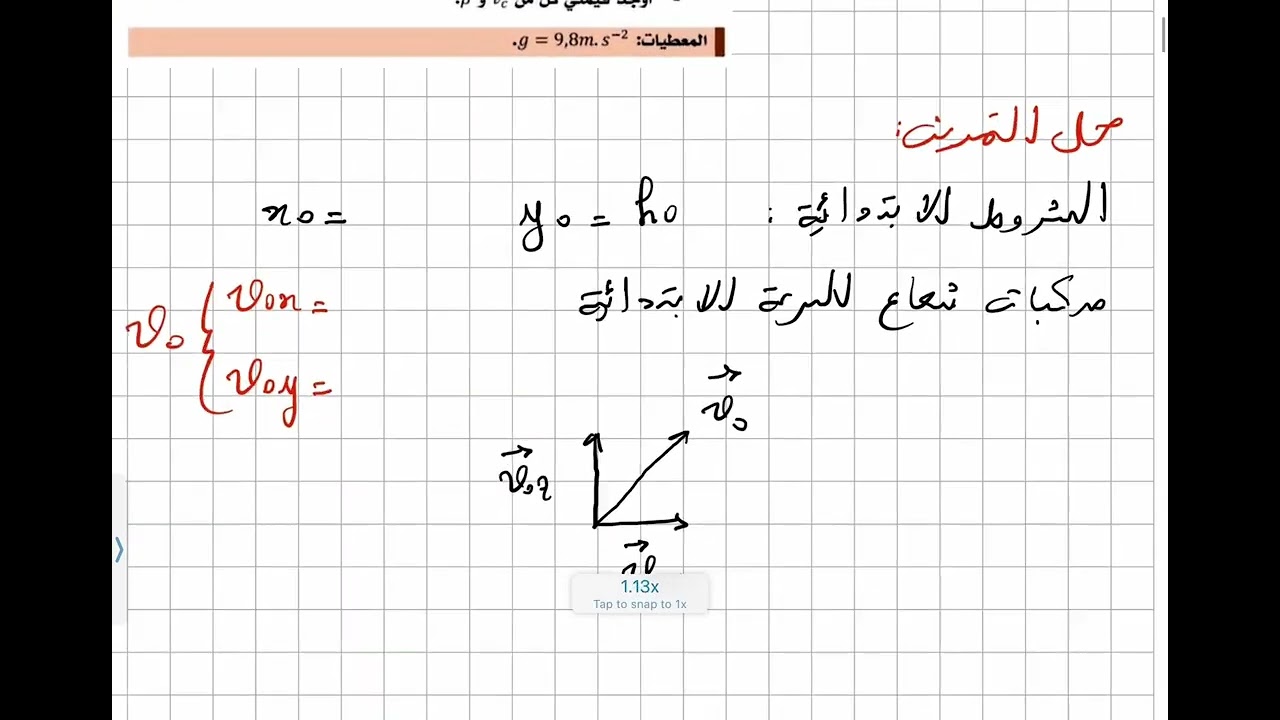 أوجد قيمتي كل من v_c و β.
المعطيات: g = 9,8m.s⁻².
حل التمرين:
الشروط الابتدائية : y₀ = h₀ x₀ =
مركبات شعاع السرعة الابتدائية
v₀ { v₀x =
v₀y =
v₀
v₀z
v
1.13x
Tap to snap to 1x